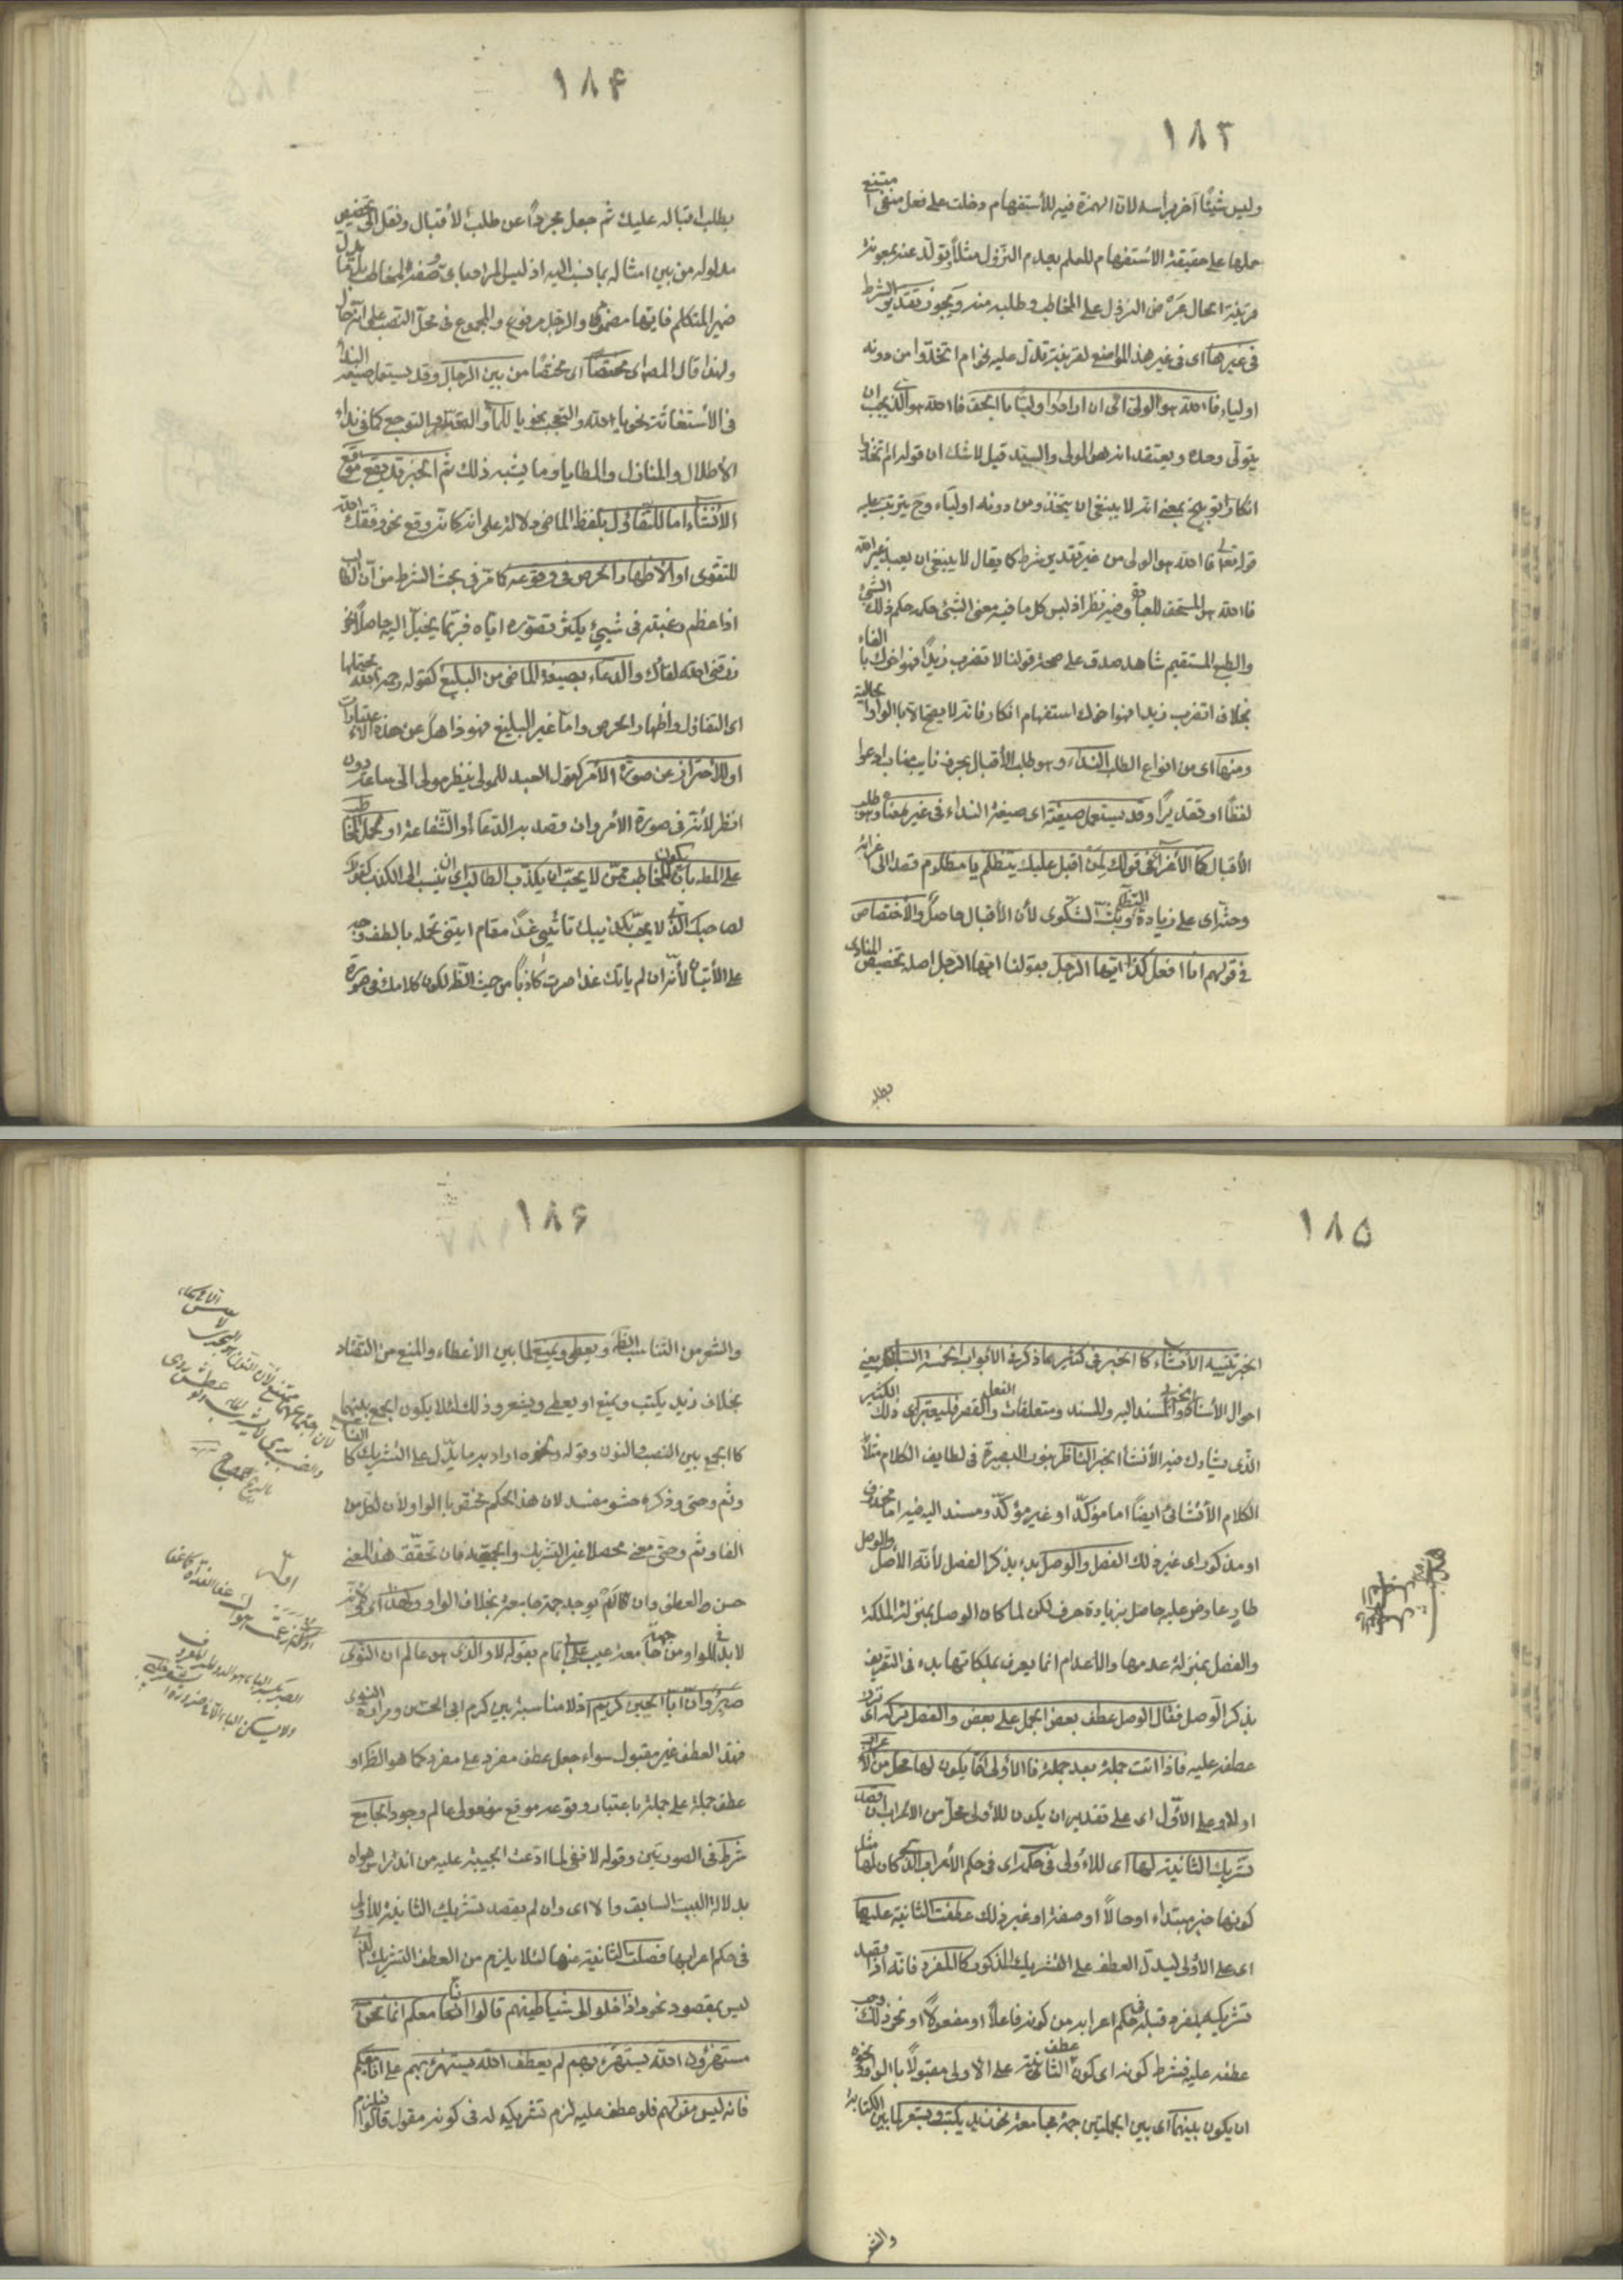 ١٨٣
وليس شيئا آخر برأسه لان الهمزة فيه للأستفهام دخلت على فعل منفي امتنع
حملها على حقيقة الاستفهام للعلم بعدم النزول مثلا وتولد عنه بمعونة
قرينة الحال عرض النزول على المخاطب وطلبه منه ويجوز تقدير الشرط
في غيرها اى في غير هذه المواضع لقرينة تدل عليه نحو ام اتخذوا من دونه
اولياء فالله هو الولي اى ان ارادوا وليا بالحق فالله هو الذي يجب ان
يتولى وحده ويعتقد انه هو المولى والسيد قيل لا شك ان قوله ام اتخذوا
انكار توبيخ بمعنى انه لا ينبغي ان يتخذ من دونه اولياء وح يترتب عليه
قوله تعالى فالله هو الولي من غير تقدير شرط كما يقال لا ينبغي ان يعبد غير الله
فالله هو المستحق للعبادة وفيه نظر اذ ليس كل ما فيه معنى الشئ حكمه حكم ذلك الشئ
والطبع المستقيم شاهد صدق على صحة قولنا لا تضرب زيدا فهو اخوك بالفاء
بخلاف اتضرب زيدا فهو اخوك استفهام انكار فانه لا يصح الا بالواو الحالية
ومنها اى من انواع الطلب النداء وهو طلب الأقبال بحرف نايب مناب ادعوا
لفظا او تقديرا وقد يستعمل صيغته اى صيغة النداء في غير معناه وهو طلب
الأقبال كالأغراء في قولك لمن اقبل عليك يتظلم يا مظلوم قصدا الى اغرائه
وحثه اى على زيادة التظلم وبث الشكوى لأن الأقبال حاصل والأختصاص
في قولهم انا افعل كذا ايها الرجل بقولنا ايها الرجل اصله تخصيص المنادى
بطلب
١٨۴
بطلب اقباله عليك ثم جعل مجردا عن طلب الأقبال ونقل الى تخصيص
مدلوله من بين امثاله بما نسب اليه اذ ليس المراد باى وصفه المخاطب بل ما دل
ضمير المتكلم فايها مضموم والرجل مرفوع والمجموع في محل النصب على انه حال
ولهذا قال المصـ اى مختصا اى مختصا من بين الرجال وقد يستعمل صيغة النداء
في الأستغاثة نحو يا الله والتعجب نحو يا للماء والتحسر والتوجع كما في نداء
الأطلال والمنازل والمطايا وما يشبه ذلك ثم الخبر قد يقع موقع
الأنشاء اما للتفاؤل بلفظ الماضي دلالة على انه كانه وقع نحو وفقك الله
للتقوى او لأظهار الحرص في وقوعه كما مر في بحث الشرط من ان الطالب
اذا عظم رغبته في شيئ يكثر تصوره اياه فربما يخيل اليه حاصلا نحو
رزقني الله لقاك والدعاء بصيغة الماضي من البليغ كقوله رحمه الله يحتملهما
اى التفاؤل واظهار الحرص واما غير البليغ فهو ذاهل عن هذه الاعتبارات
او للأحتراز عن صورة الأمر كقول العبد للمولى ينظر مولى الى ساعة دون
انظر لأنه في صورة الأمر وان قصد به الدعاء او الشفاعة او لحمل المخاطب
على المط بان يكون المخاطب ممن لا يحب ان يكذب الطالب اى ان ينسب الى الكذب كقولك
لصاحبك الذي لا يحب تكذيبك تأتيني غدا مقام ايتني تحمله بالطف وجه
على الأتيان لأنه ان لم يأتك غدا صرت كاذبا من حيث الظ لكون كلامك في صورة
١٨۵
الخبر تنبيه الأنشاء كالخبر في كثير مما ذكر في الأبواب الخمسة السابقة يعني
احوال الأسناد الخبري والمسند اليه والمسند ومتعلقات الفعل والقصر فليعتبر اى ذلك الكثير
الذي يشارك فيه الأنشا الخبر الناظر بنور البصيرة في لطايف الكلام مثلا
الكلام الأنشائي ايضا اما مؤكد او غير مؤكد ومسند اليه فيه اما محذوف
او مذكور الى غير ذلك الفصل والوصل بدء بذكر الفصل لأنه الأصل والوصل
طار عارض عليه حاصل بزيادة حرف لكن لما كان الوصل بمنزلة الملكة
والفصل بمنزلة عدمها والأعدام انما يعرف بملكاتها بدء في التعريف
بذكر الوصل فقال الوصل عطف بعض الجمل على بعض والفصل تركه اى ترك
عطفه عليه فاذا اتت جملة بعد جملة فالأولى اما يكون لها محل من الأعراب
اولا وعلى الأول اى على تقدير ان يكون للأولى محل من الأعراب ان قصد
تشريك الثانية لها اى للاولى في حكمه اى في حكم الأعراب الذي كان لها مثل
كونها خبر مبتداء او حالا او صفة او غير ذلك عطفت الثانية عليها
اى على الأولى ليدل العطف على التشريك المذكور كالمفرد فانه اذا قصد
تشريكه لمفرد قبله في حكم اعرابه من كونه فاعلا او مفعولا او نحو ذلك وجب
عطفه عليه فشرط كونه اى كون عطف الثانية على الاولى مقبولا بالواو ونحوه
ان يكون بينهما اى بين الجملتين جهة جامعة نحو زيد يكتب ويشعر لما بين الكتابة
والشعر
١٨۶
والشعر من التناسب الظ ويعطي ويمنع لما بين الأعطاء والمنع من التضاد
بخلاف زيد يكتب ويمنع او يعطي ويشعر وذلك لئلا يكون الجمع بينهما
كالجمع بين الضب والنون وقوله ونحوه اراد به ما يدل على التشريك كالفاء
وثم وحتى وذكره حشو مفسد لان هذا الحكم مختص بالواو لأن لكل من
الفا وثم وحتى معنى محصلا غير التشريك والجمعية فان تحقق هذا المعنى
حسن العطف وان لم يوجد جهة جامعة بخلاف الواو ولهذا اى ولأنه
لا بد في الواو من جهة جامعة عيب على ابي تمام بقوله لا والذي هو عالم ان النوى
صبر وان ابا الحسين كريم اذ لا مناسبة بين كرم ابي الحسين ومرارة النوى
فهذا العطف غير مقبول سواء جعل عطف مفرد على مفرد كما هو الظ او
عطف جملة على جملة باعتبار وقوعه موقع مفعولي عالم وجود الجامع
شرط في الصورتين وقوله لا نفي لما ادعت الحبيبة عليه من اندراس هواه
بدلالة البيت السابق والا اى وان لم يقصد تشريك الثانية للأولى
في حكم اعرابها فصلت الثانية عنها لئلا يلزم من العطف التشريك الذي
ليس بمقصود نحو واذا خلوا الى شياطينهم قالوا انا معكم انما نحن
مستهزؤن الله يستهزء بهم لم يعطف الله يستهزء بهم على انا معكم
فانه ليس مقولهم فلو عطف عليه لزم تشريكه له في كونه مقول قالوا فيلزم